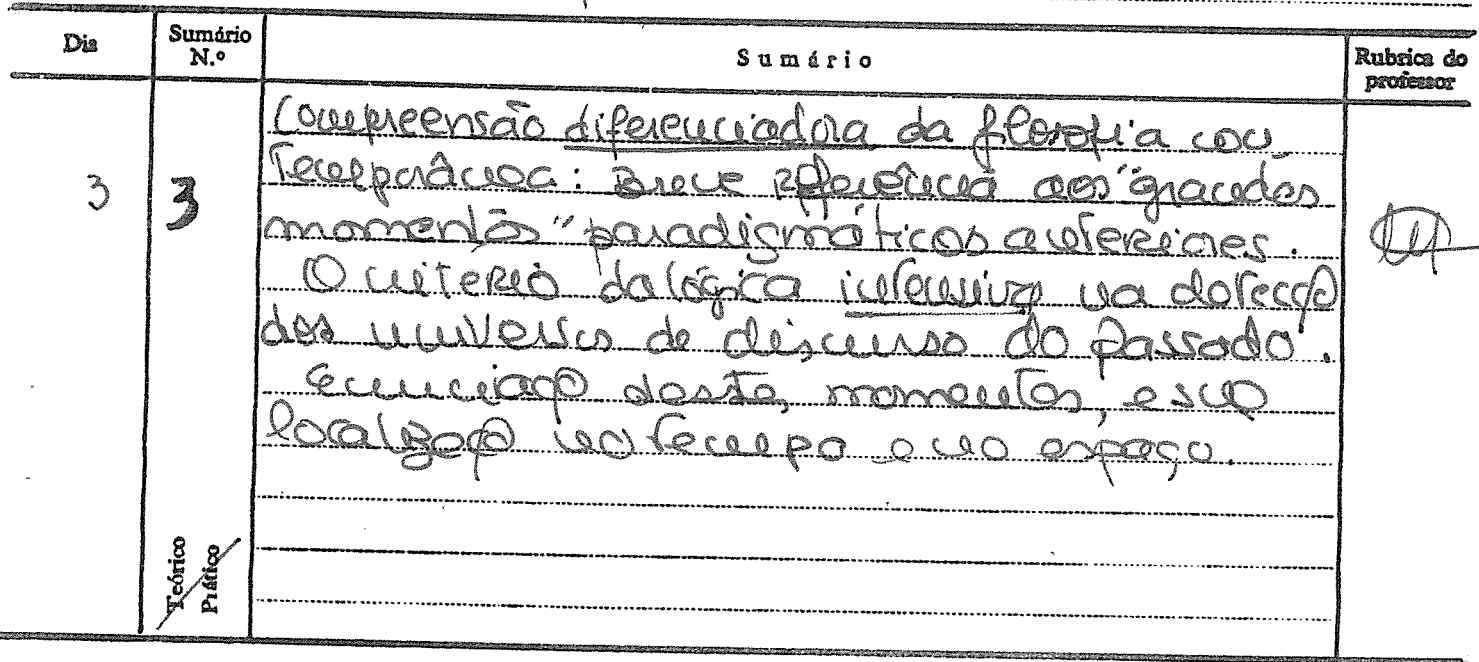 Dia
Sumário N.º
Sumário
Rubrica do professor
3
3
Compreensão diferenciadora da filosofia con
temporânea: Breve Referência aos "grandes
momentos" paradigmáticos anteriores.
O critério da lógica intensiva na detecção
dos universos de discurso do passado.
Enunciação destes momentos, e sua
localização no tempo e no espaço.
Teórico
Prático